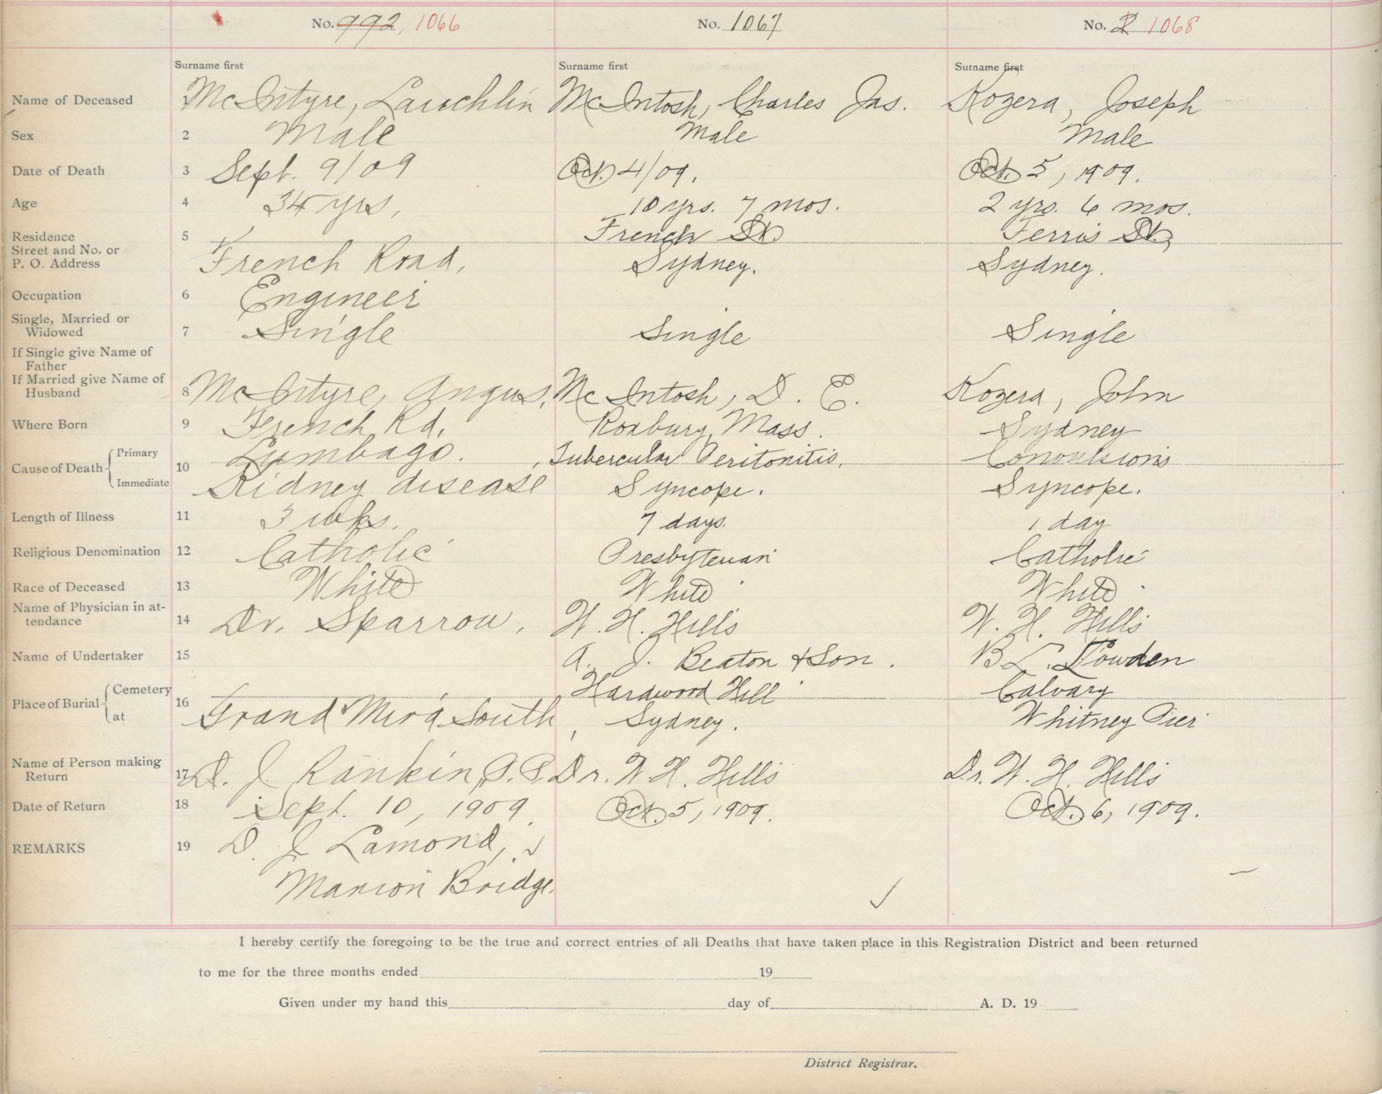 No. 992, 1066 No. 1067 No. 2 1068
Surname first Surname first Surname first
Name of Deceased McIntyre, Lauchlin McIntosh, Charles Jas. Kozera, Joseph
Sex 2 Male Male Male
Date of Death 3 Sept. 9/09 Oct. 4/09. Oct. 5, 1909.
Age 4 34 yrs. 10 yrs. 7 mos. 2 yrs. 6 mos.
Residence 5 French St. Ferris St.
Street and No. or
P. O. Address French Road, Sydney. Sydney.
Occupation 6 Engineer
Single, Married or
Widowed 7 Single Single Single
If Single give Name of
Father
If Married give Name of
Husband 8 McIntyre, Angus, McIntosh, D. E. Kozera, John
Where Born 9 French Rd, Roxbury, Mass. Sydney
Cause of Death Primary 10 Lumbago. Tubercular Peritonitis, Convulsions
Immediate Kidney disease Syncope. Syncope.
Length of Illness 11 3 wks. 7 days. 1 day
Religious Denomination 12 Catholic Presbyterian Catholic
Race of Deceased 13 White White White
Name of Physician in at-
tendance 14 Dr. Sparrow, W. H. Hills W. H. Hills
Name of Undertaker 15 A. J. Beaton & Son. B L. Lowden
Place of Burial Cemetery 16 Hardwood Hill Calvary
at Grand Mira South, Sydney. Whitney Pier
Name of Person making
Return 17 D. J. Rankin, P.P. Dr. W. H. Hills Dr. W. H. Hills
Date of Return 18 Sept. 10, 1909. Oct. 5, 1909. Oct. 6, 1909.
REMARKS 19 D. J. Lamond,
Marion Bridge.
I hereby certify the foregoing to be the true and correct entries of all Deaths that have taken place in this Registration District and been returned
to me for the three months ended 19
Given under my hand this day of A. D. 19
District Registrar.